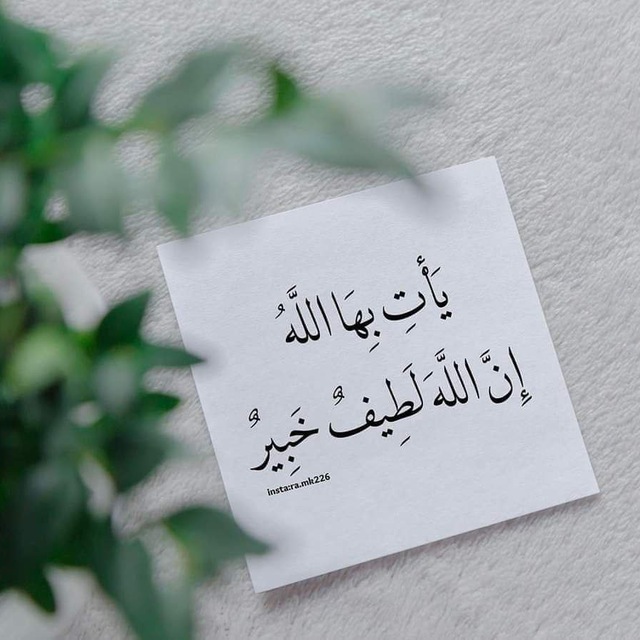 يَأْتِ بِهَا اللَّهُ
إِنَّ اللَّهَ لَطِيفٌ خَبِيرٌ
insta:ra.mk226